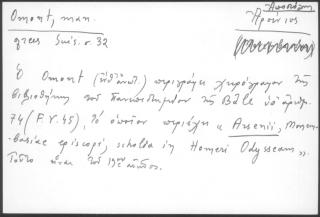 Omont, man.
grecs Suis. σ. 32
Ἀποστόλης
Ἀρσένιος
Ὁ Omont περιγράφει χειρόγραφον τῆς
βιβλιοθήκης τοῦ Πανεπιστημίου τῆς Bâle ὑπ' ἀριθμ.
74 (F. V. 45), τὸ ὁποῖον περιέχει «Arsenii, Monem-
basiae episcopi, scholia in Homeri Odysseam».
Τοῦτο εἶναι τοῦ αἰῶνος.